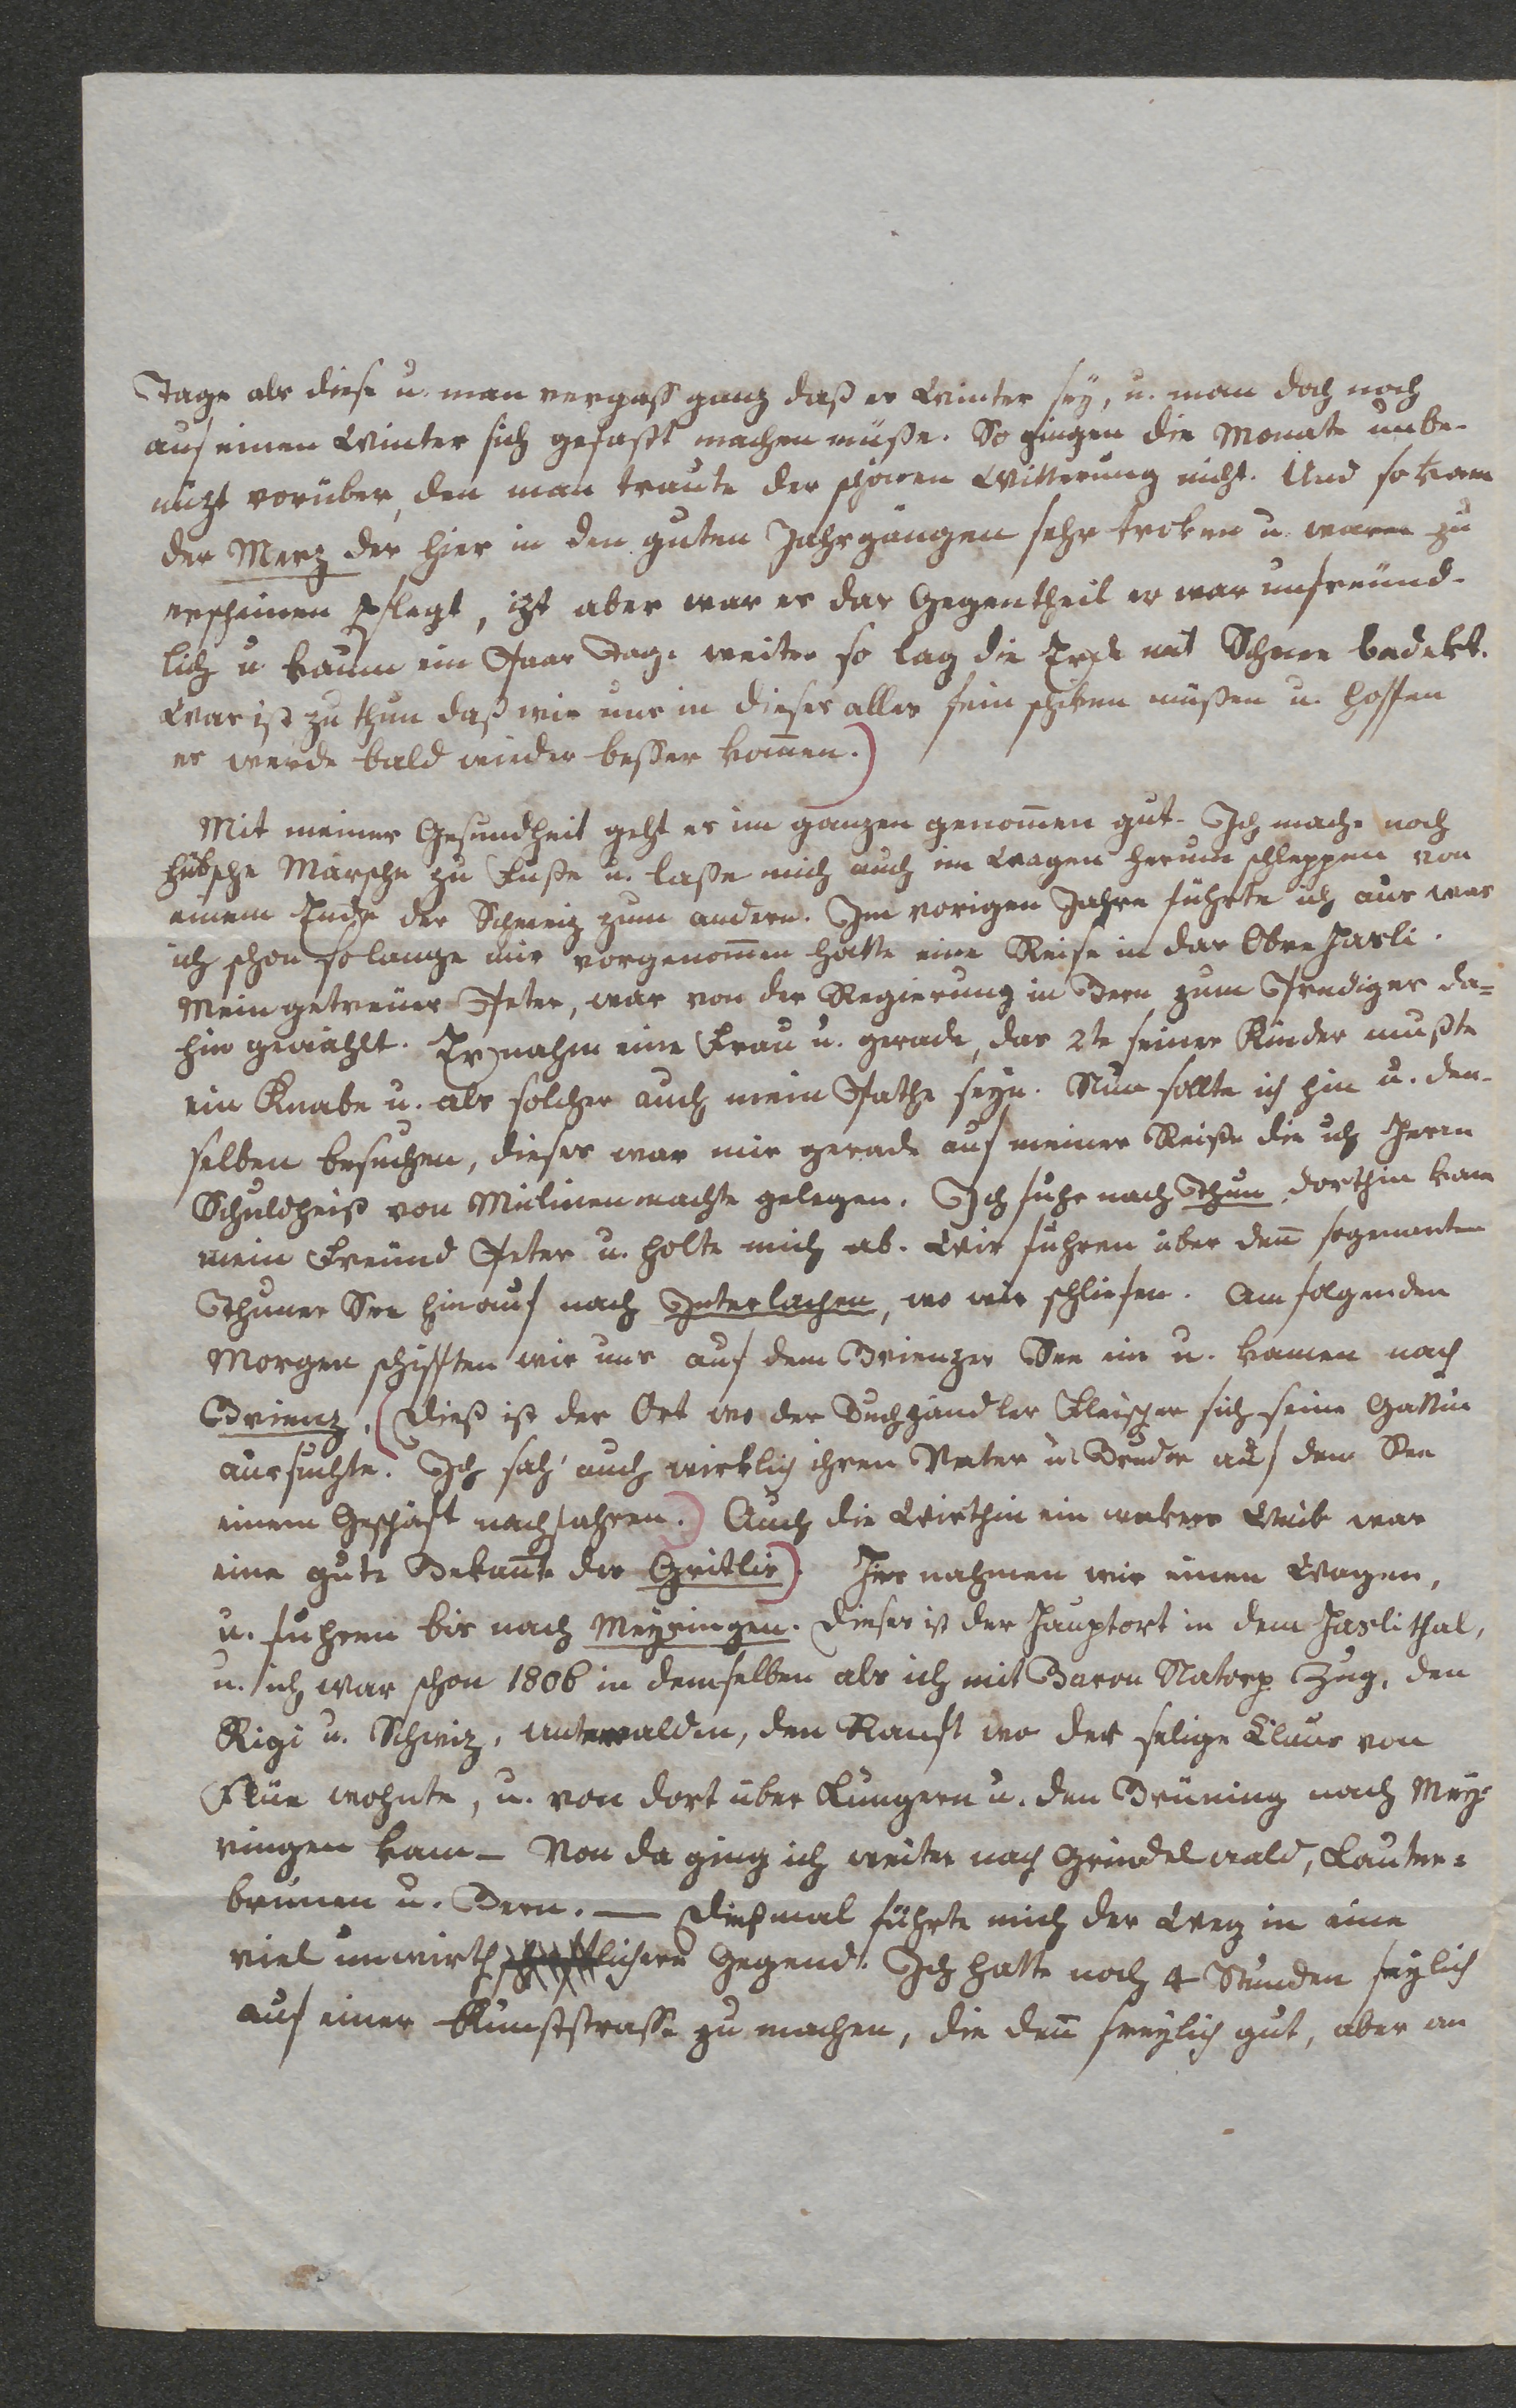 Tage als diese u. man vergaß ganz daß es Winter sey, u. man doch noch
auf einen Winter sich gefaßt machen müße. So gingen die Monate unbe-
nüzt vorüber, den man traute der schönen Witterung nicht. Und so kam
der Merz der hier in den guten Jahrgängen sehr troken u. warm zu
erscheinen pflegt, izt aber war er das Gegentheil er war unfreünd-
lich u kaum ein Paar Tage weiter so lag die Erde mit Schnee bedekt.
Was ist zu thun daß wir uns in dieses alles fein schiken müßen u. hoffen
es werde bald wieder beßer kom̄en.)
Mit meiner Gesundheit geht es im ganzen genom̄en gut. Ich mache noch
hübsche Märsche zu Fuße u. laße mich auch im Wagen herum schleppen von
einem Ende der Schweiz zum andern. Im vorigen Jahre führte ich aus was
ich schon so lange mir vorgenom̄en hatte eine Reise in das Obre Hasli.
Mein getreüer Peter, war von der Regierung in Bern zum Prediger da=
hin gewählt. Er nahm eine Frau u. gerade, das 2te seiner Kinder mußte
ein Knabe u. als solcher auch mein Pathe seyn. Nun sollte ich hin u. den-
selben besuchen, dieses war mir gerade auf meiner Reise die ich Herrn
Schuldheiß von Mülinen machte gelegen. Ich fuhr nach Thun, dorthin kam
mein Freünd Peter u. holte mich ab. Wir fuhren über den̄ sogenanten
Thuner See hinauf nach Interlachen, wo wir schliefen. Am folgenden
Morgen schifften wir uns auf dem Brienzer See ein u. kamen nach
Brienz. (Dieß ist der Ort wo der Buchhändler Fleischer sich seine Gattin
aussuchte. Ich sah' auch wirklich ihren Vater u. Bruder auf dem See
einem Geschäft nachfahren.) Auch die Wirthin ein wakeres Weib war
eine gute Bekan̄te des Gritlis). Hier nahmen wir einen Wagen,
u. fuhren bis nach Meyringen. Dieses ist der Hauptort in dem Haslithal,
u. ich war schon 1806 in demselben als ich mit Baron Natorp Zug, den
Rigi u. Schwiz, unterwalden, den Ranft wo der selige Claus von
Flüe wohnte, u. von dort über Lungern u. den Brüning nach Mey=
ringen kam – Von da ging ich weiter nach Grindelwald, Lauter=
brunen u. Bern. — Dießmal führte mich der Weg in eine
viel unwirthlichere Gegend. Ich hatte noch 4 Stunden freylich
auf einer Kunststrasse zu machen, die den̄ freylich gut, aber an